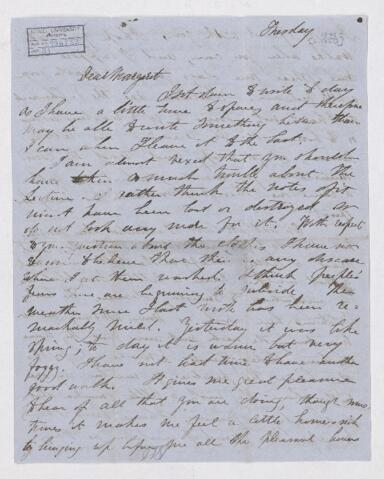 Tuesday
Dear Margaret
I sit down to write to day
as I have a little time to spare, and therefore
may be able to write something better than
I can when I leave it to the last.
I am almost vexed that you should
have taken so much trouble about the
Lecture. I rather think the notes of it
must have been lost or destroyed so
do not look any more for it. With respect
to your question about the I have no
reason to believe that there is any disease
where I get them washed. I think people's
fears are beginning to subside. The
weather since I last wrote has been re-
markably mild. Yesterday it was like
Spring; to day it is warm but very
foggy. I have not had time to have another
good walk. It gives me great pleasure
to hear of all that you are doing, though some
times it makes me feel a little homesick
by bringing up before me all the pleasant hours